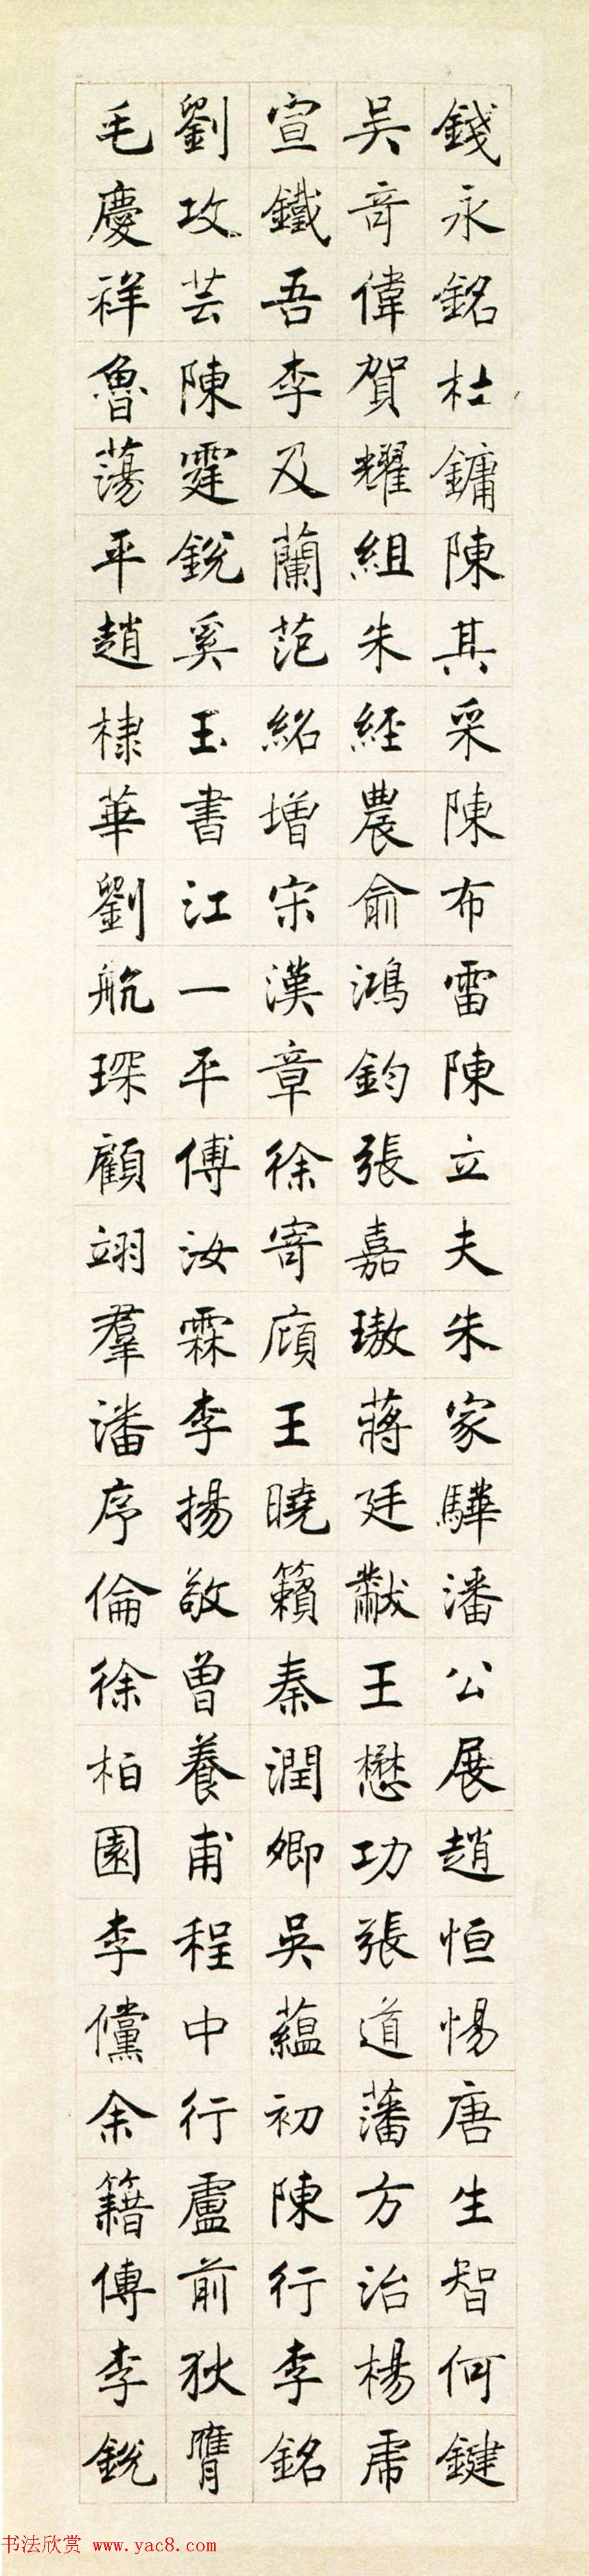 錢永銘杜鏞陳其采陳布雷陳立夫朱家驊潘公展趙恒惕唐生智何鍵
吳奇偉賀耀組朱經農俞鴻鈞張嘉璈蔣廷黻王懋功張道藩方治楊虎
宣鐵吾李及蘭范紹增宋漢章徐寄廎王曉籟秦潤卿吳蘊初陳行李銘
劉攻芸陳霆銳奚玉書江一平傅汝霖李揚敬曾養甫程中行盧前狄膺
毛慶祥魯蕩平趙棣華劉航琛顧翊羣潘序倫徐柏園李儻余籍傳李銳
书法欣赏 www.yac8.com